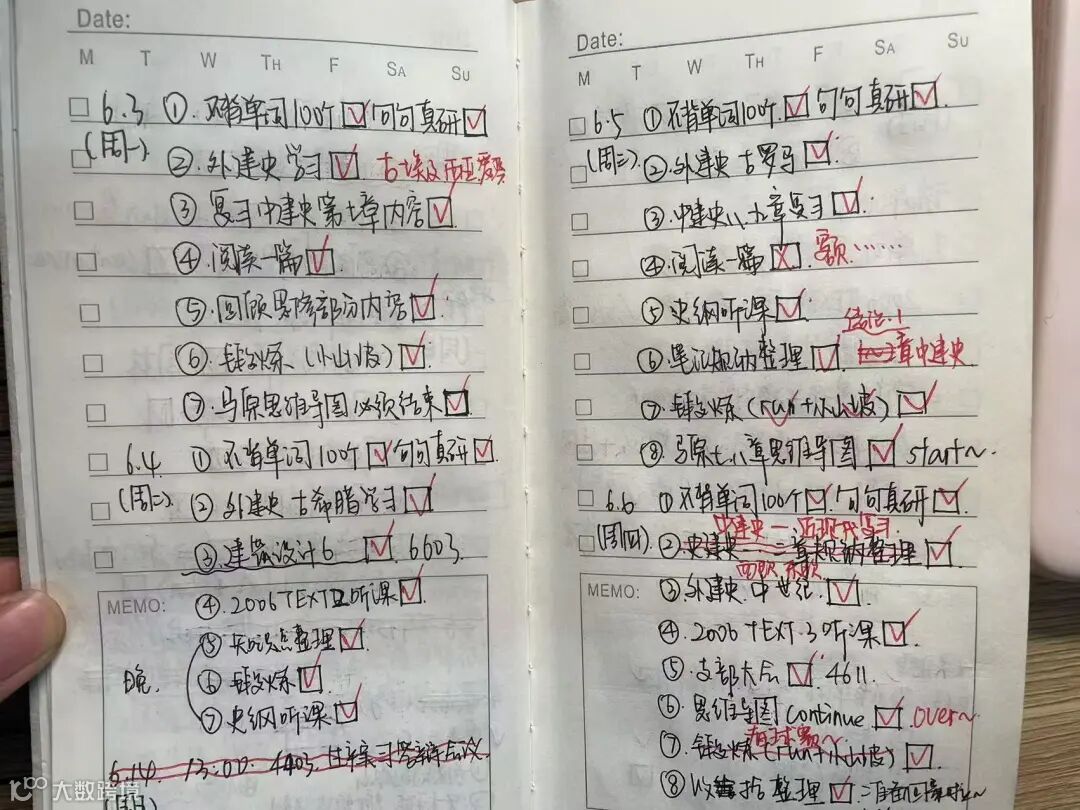 Date:
M T W TH F SA SU
6.3 ① 不背单词100个 句句真研
(周一) ② 外建史学习 古埃及西亚爱琴
③ 复习中建史第七章内容
④ 阅读一篇
⑤ 回顾思修部分内容
⑥ 锻炼 (小山坡)
⑦ 马原思维导图必须结束
6.4 ① 不背单词100个 句句真研
(周二) ② 外建史 古希腊学习
③ 建筑设计6 6603.
MEMO: ④ 2006 TEXT2听课
⑤ 知识点整理
晚. ⑥ 锻炼
⑦ 史纲听课
6.14. 13:00. 4403.
(周日)
Date:
M T W TH F SA SU
6.5 ① 不背单词100个 句句真研
(周三) ② 外建史 古罗马
③ 中建史八、九章复习
④ 阅读一篇 额……
⑤ 史纲听课
⑥ 笔记归纳整理 章中建史
⑦ 锻炼 (run+小山坡)
⑧ 马原七八章思维导图 start~
6.6 ① 不背单词100个 句句真研
中建史一 近现代复习
(周四) ② 归纳整理
③ 外建史 中世纪
MEMO: ④ 2006 TEXT.3 听课
⑤ 支部大会 4611.
⑥ 思维导图 continue over~
⑦ 锻炼 (run+小山坡)
⑧ 整理
大数跨境